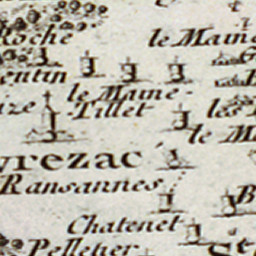 Roche
le Maine
entin
le Maine
Tillet
les
le M
yrezac
Ransannes
Chatenet
Pelletier
St